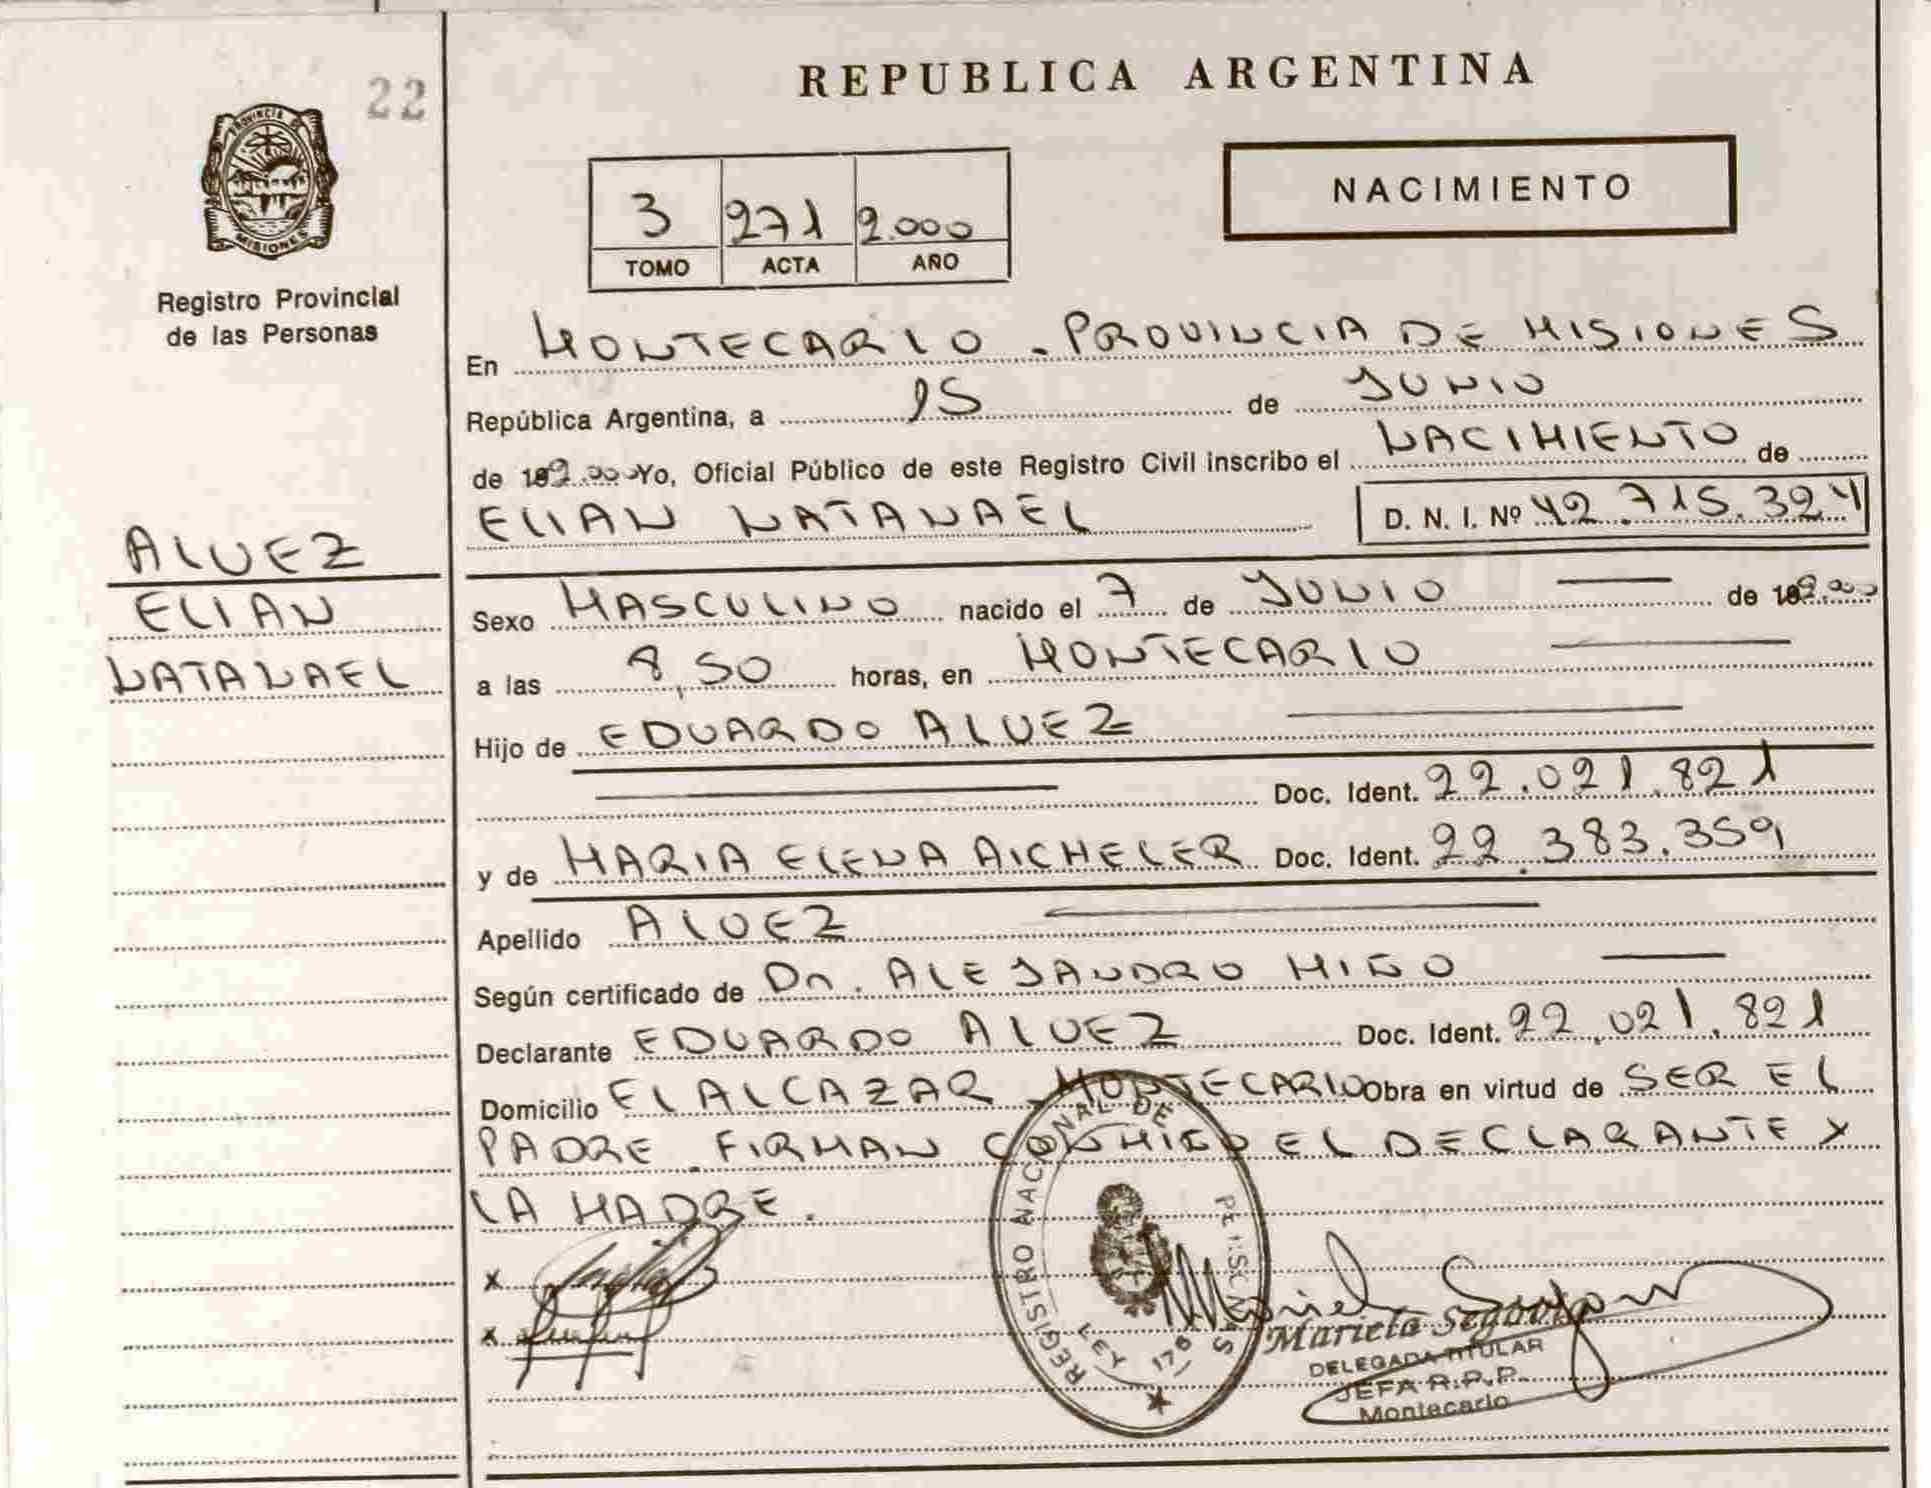 22
REPUBLICA ARGENTINA
PROVINCIA DE
MISIONES
3 271 2.000
TOMO ACTA AÑO
NACIMIENTO
Registro Provincial
de las Personas
En MONTECARLO - PROVINCIA DE MISIONES
República Argentina, a 15 de JUNIO
de 192.000 Yo, Oficial Público de este Registro Civil inscribo el NACIMIENTO de
ELIAN NATANAEL D. N. I. Nº 42.715.324
ALVEZ
ELIAN
NATANAEL
Sexo MASCULINO nacido el 7 de JUNIO de 192.000
a las 8,50 horas, en MONTECARLO
Hijo de EDUARDO ALVEZ
Doc. Ident. 22.021.821
y de MARIA ELENA AICHELER Doc. Ident. 22.383.359
Apellido ALVEZ
Según certificado de Dr. ALEJANDRO MIÑO
Declarante EDUARDO ALVEZ Doc. Ident. 22.021.821
Domicilio EL ALCAZAR - MONTECARLO Obra en virtud de SER EL
PADRE. FIRMAN CONMIGO EL DECLARANTE Y
LA MADRE.
x
x
REGISTRO NACIONAL DE
LEY 176
Mariela Segovia
DELEGADA TITULAR
JEFA R.P.P.
Montecarlo